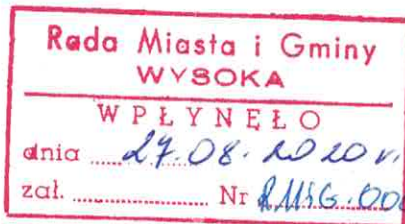 Rada Miasta i Gminy
WYSOKA
WPŁYNĘŁO
dnia ..... 27.08.2020 r.
zał. .................. Nr RMiG.000